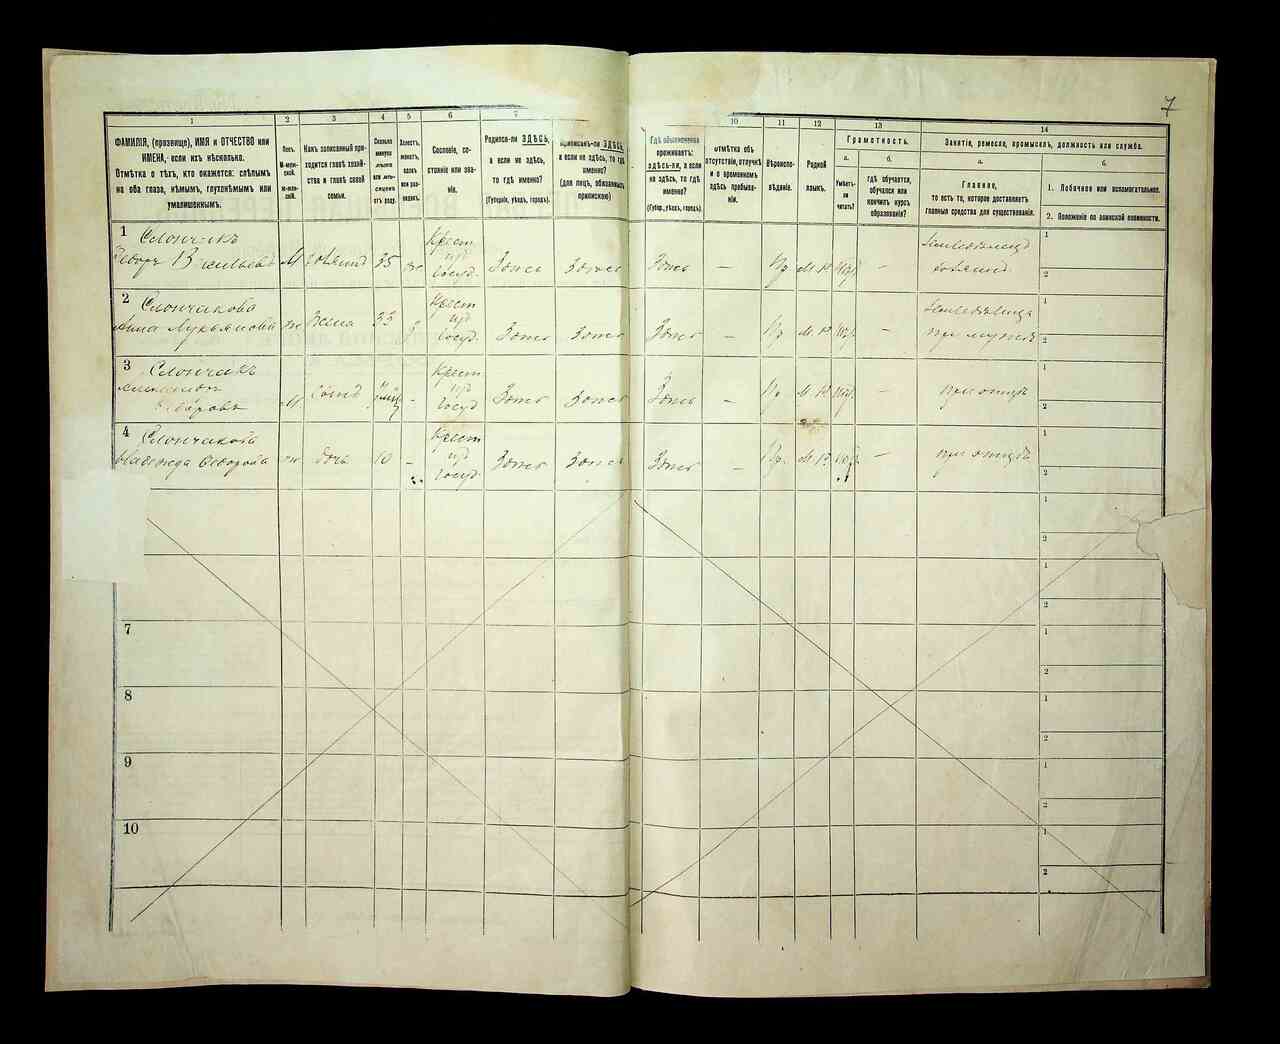 7
1 2 3 4 5 6 7 10 11 12 13 14
ФАМИЛІЯ, (прозвище), ИМЯ и ОТЧЕСТВО или
ИМЕНА, если ихъ нѣсколько.
Отмѣтка о тѣхъ, кто окажется: слѣпымъ
на оба глаза, нѣмымъ, глухонѣмымъ или
умалишеннымъ.
Полъ.
Какъ записанный при-
ходится главѣ хозяй-
ства и главѣ своей
семьи.
Сколько
минуло
лѣтъ
или мѣ-
сяцевъ
отъ роду.
Сословіе, со-
стояніе или зва-
ніе.
Родился-ли ЗДѢСЬ,
а если не здѣсь,
то гдѣ именно?
(Губернія, уѣздъ, городъ).
Приписанъ-ли ЗДѢСЬ,
а если не здѣсь, то гдѣ
именно?
(для лицъ, обязанныхъ
припискою)
Гдѣ обыкновенно
проживаетъ:
здѣсь-ли, а если
не здѣсь, то гдѣ
именно?
(Губер., уѣздъ, городъ).
отмѣтка объ
отсутствіи, отлучкѣ
и о временномъ
здѣсь пребыва-
ніи.
Вѣроиспо-
вѣданіе.
Родной
языкъ.
Грамотность.
а. б.
Умѣетъ-
ли
читать?
гдѣ обучается,
обучался или
кончилъ курсъ
образованія?
Занятіе, ремесло, промыселъ, должность или служба.
а. б.
Главное,
то есть то, которое доставляетъ
главныя средства для существованія.
1. Побочное или вспомогательное.
2. Положеніе по воинской повинности.
1 Слончакъ Крест 1
Ѳедоръ Васильевъ М хозяинъ 35 изъ Госуд. Здѣсь Здѣсь Здѣсь — — хозяинъ 2
2 Слончакова Крест 1
Анна Лукьянова ж жена 33 изъ Госуд. Здѣсь Здѣсь Здѣсь — — при мужѣ 2
3 Слончакъ Крест 1
М сынъ изъ Госуд. Здѣсь Здѣсь Здѣсь — — при отцѣ 2
4 Слончакова Крест 1
Надежда Ѳедорова ж дочь 10 – изъ Госуд. Здѣсь Здѣсь Здѣсь — — при отцѣ 2
1
2
1
2
7 1
2
8 1
2
9 1
2
10 1
2